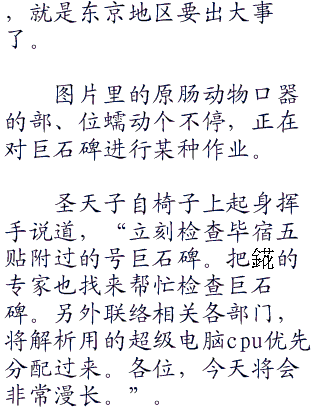 ，就是东京地区要出大事
了。
图片里的原肠动物口器
的部、位蠕动个不停，正在
对巨石碑进行某种作业。
圣天子自椅子上起身挥
手说道，“立刻检查毕宿五
贴附过的号巨石碑。把的
专家也找来帮忙检查巨石
碑。另外联络相关各部门，
将解析用的超级电脑cpu优先
分配过来。各位，今天将会
非常漫长。”。